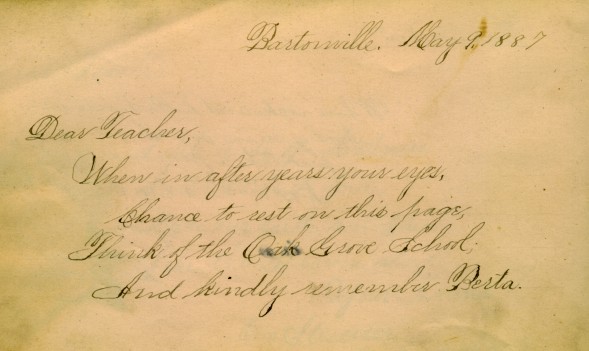 Bartonville. May 9, 1887
Dear Teacher,
When in after years your eyes,
Chance to rest on this page,
Think of the Oak Grove School;
And kindly remember Berta.